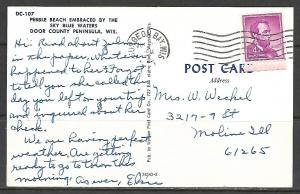 DC-107
PEBBLE BEACH EMBRACED BY THE
SKY BLUE WATERS
DOOR COUNTY PENINSULA, WIS.
Hi Read about John
in the paper, whatever
happened to her? I forgot
to tell you she called the
day you left on your trip
and inquired about
you.
We are having perfect
weather. Are getting
ready to go to town this
morning. As ever, Elsie
POST CARD
Address
Mrs. W. Weckel
3217-9 St
Moline Ill
61265